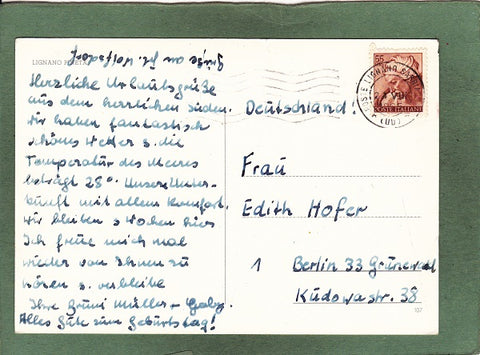 Grüße an Frl.
LIGNANO PINETA
Herzliche Urlaubsgrüße
aus dem herrlichen Süden.
Wir haben fantastisch
schönes Wetter u. die
Temperatur des Meeres
beträgt 28°. Unsere Unter-
kunft mit allem Komfort.
Wir bleiben 3 Wochen hier
Ich freue mich mal
wieder von Ihnen zu
hören u. verbleibe
Ihre Müller + Gaby.
Alles Gute zum Geburtstag!
55
POSTE ITALIANE
LIGNANO
(UD)
Deutschland.
Frau
Edith Hofer
1 Berlin 33 Grunewald
Kudowastr. 38
107